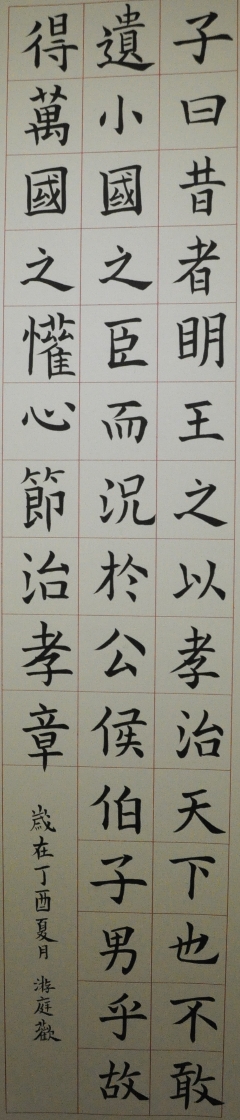 子曰昔者明王之以孝治天下也不敢
遺小國之臣而況於公侯伯子男乎故
得萬國之懽心節治孝章
歲在丁酉夏月 游庭歡